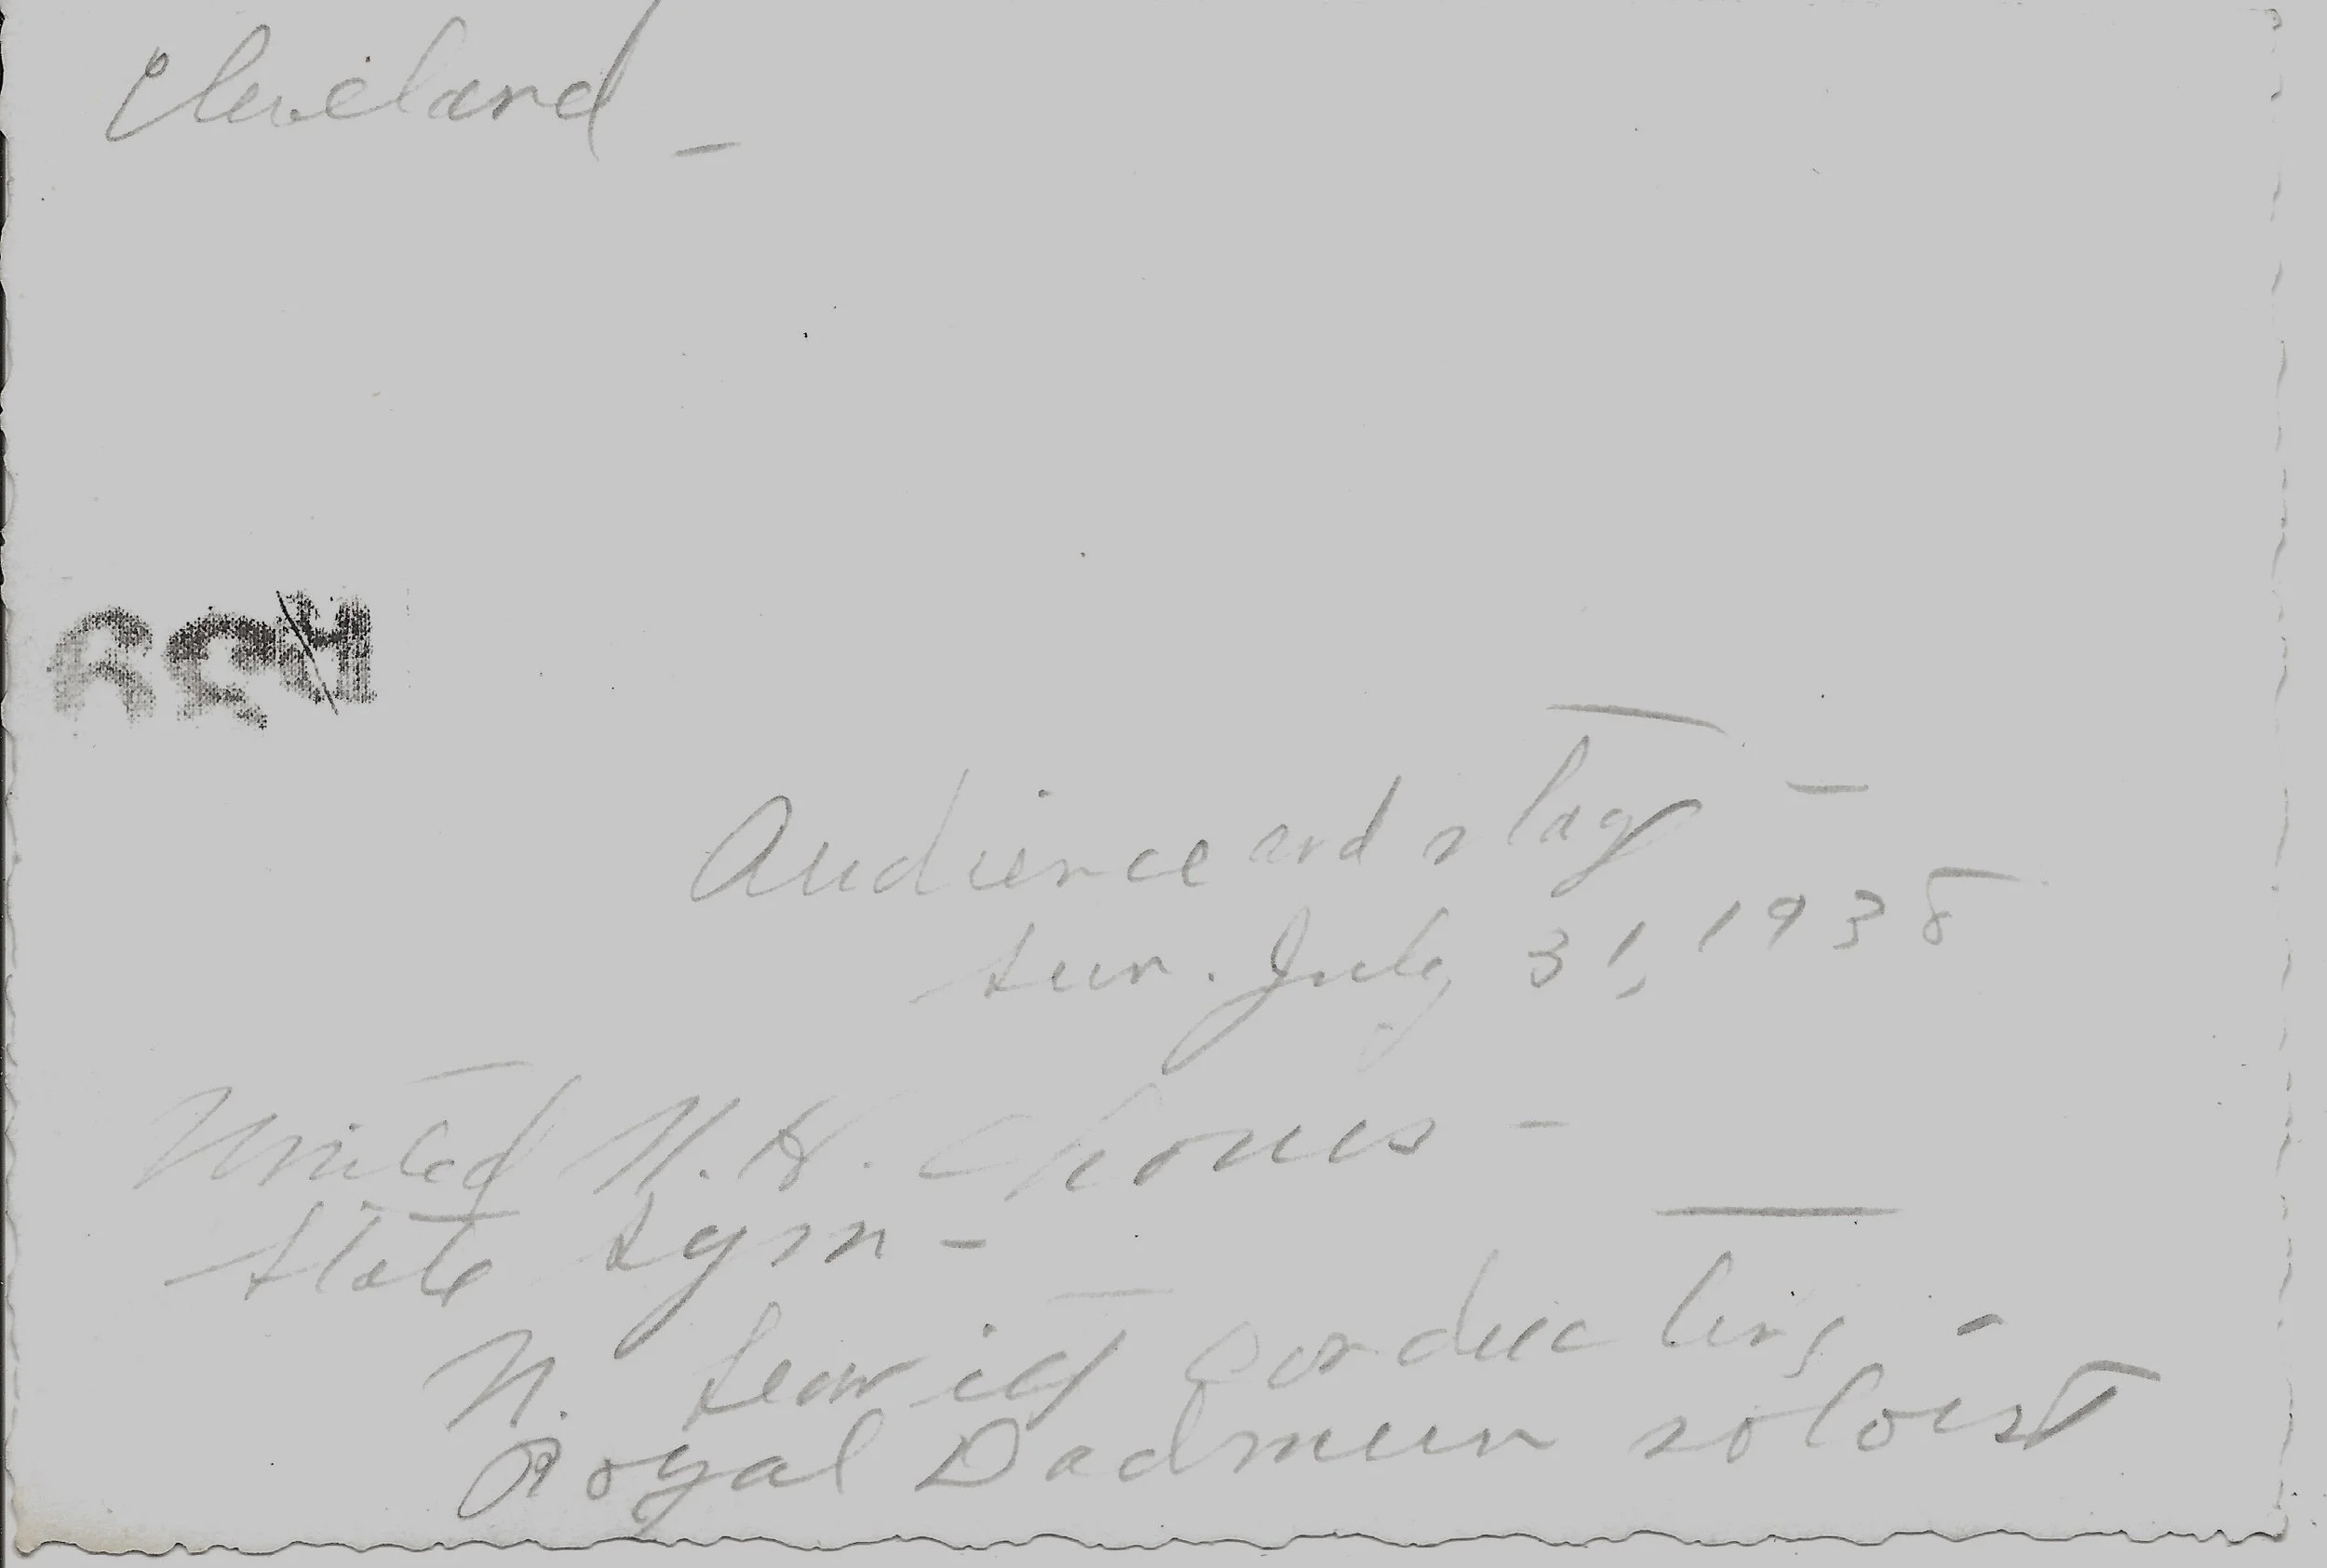 Cleveland –
Audience and stage –
Sun. July 31, 1938
United N. H. Chorus –
State Sym –
N. conducting –
Royal Dadmun soloist